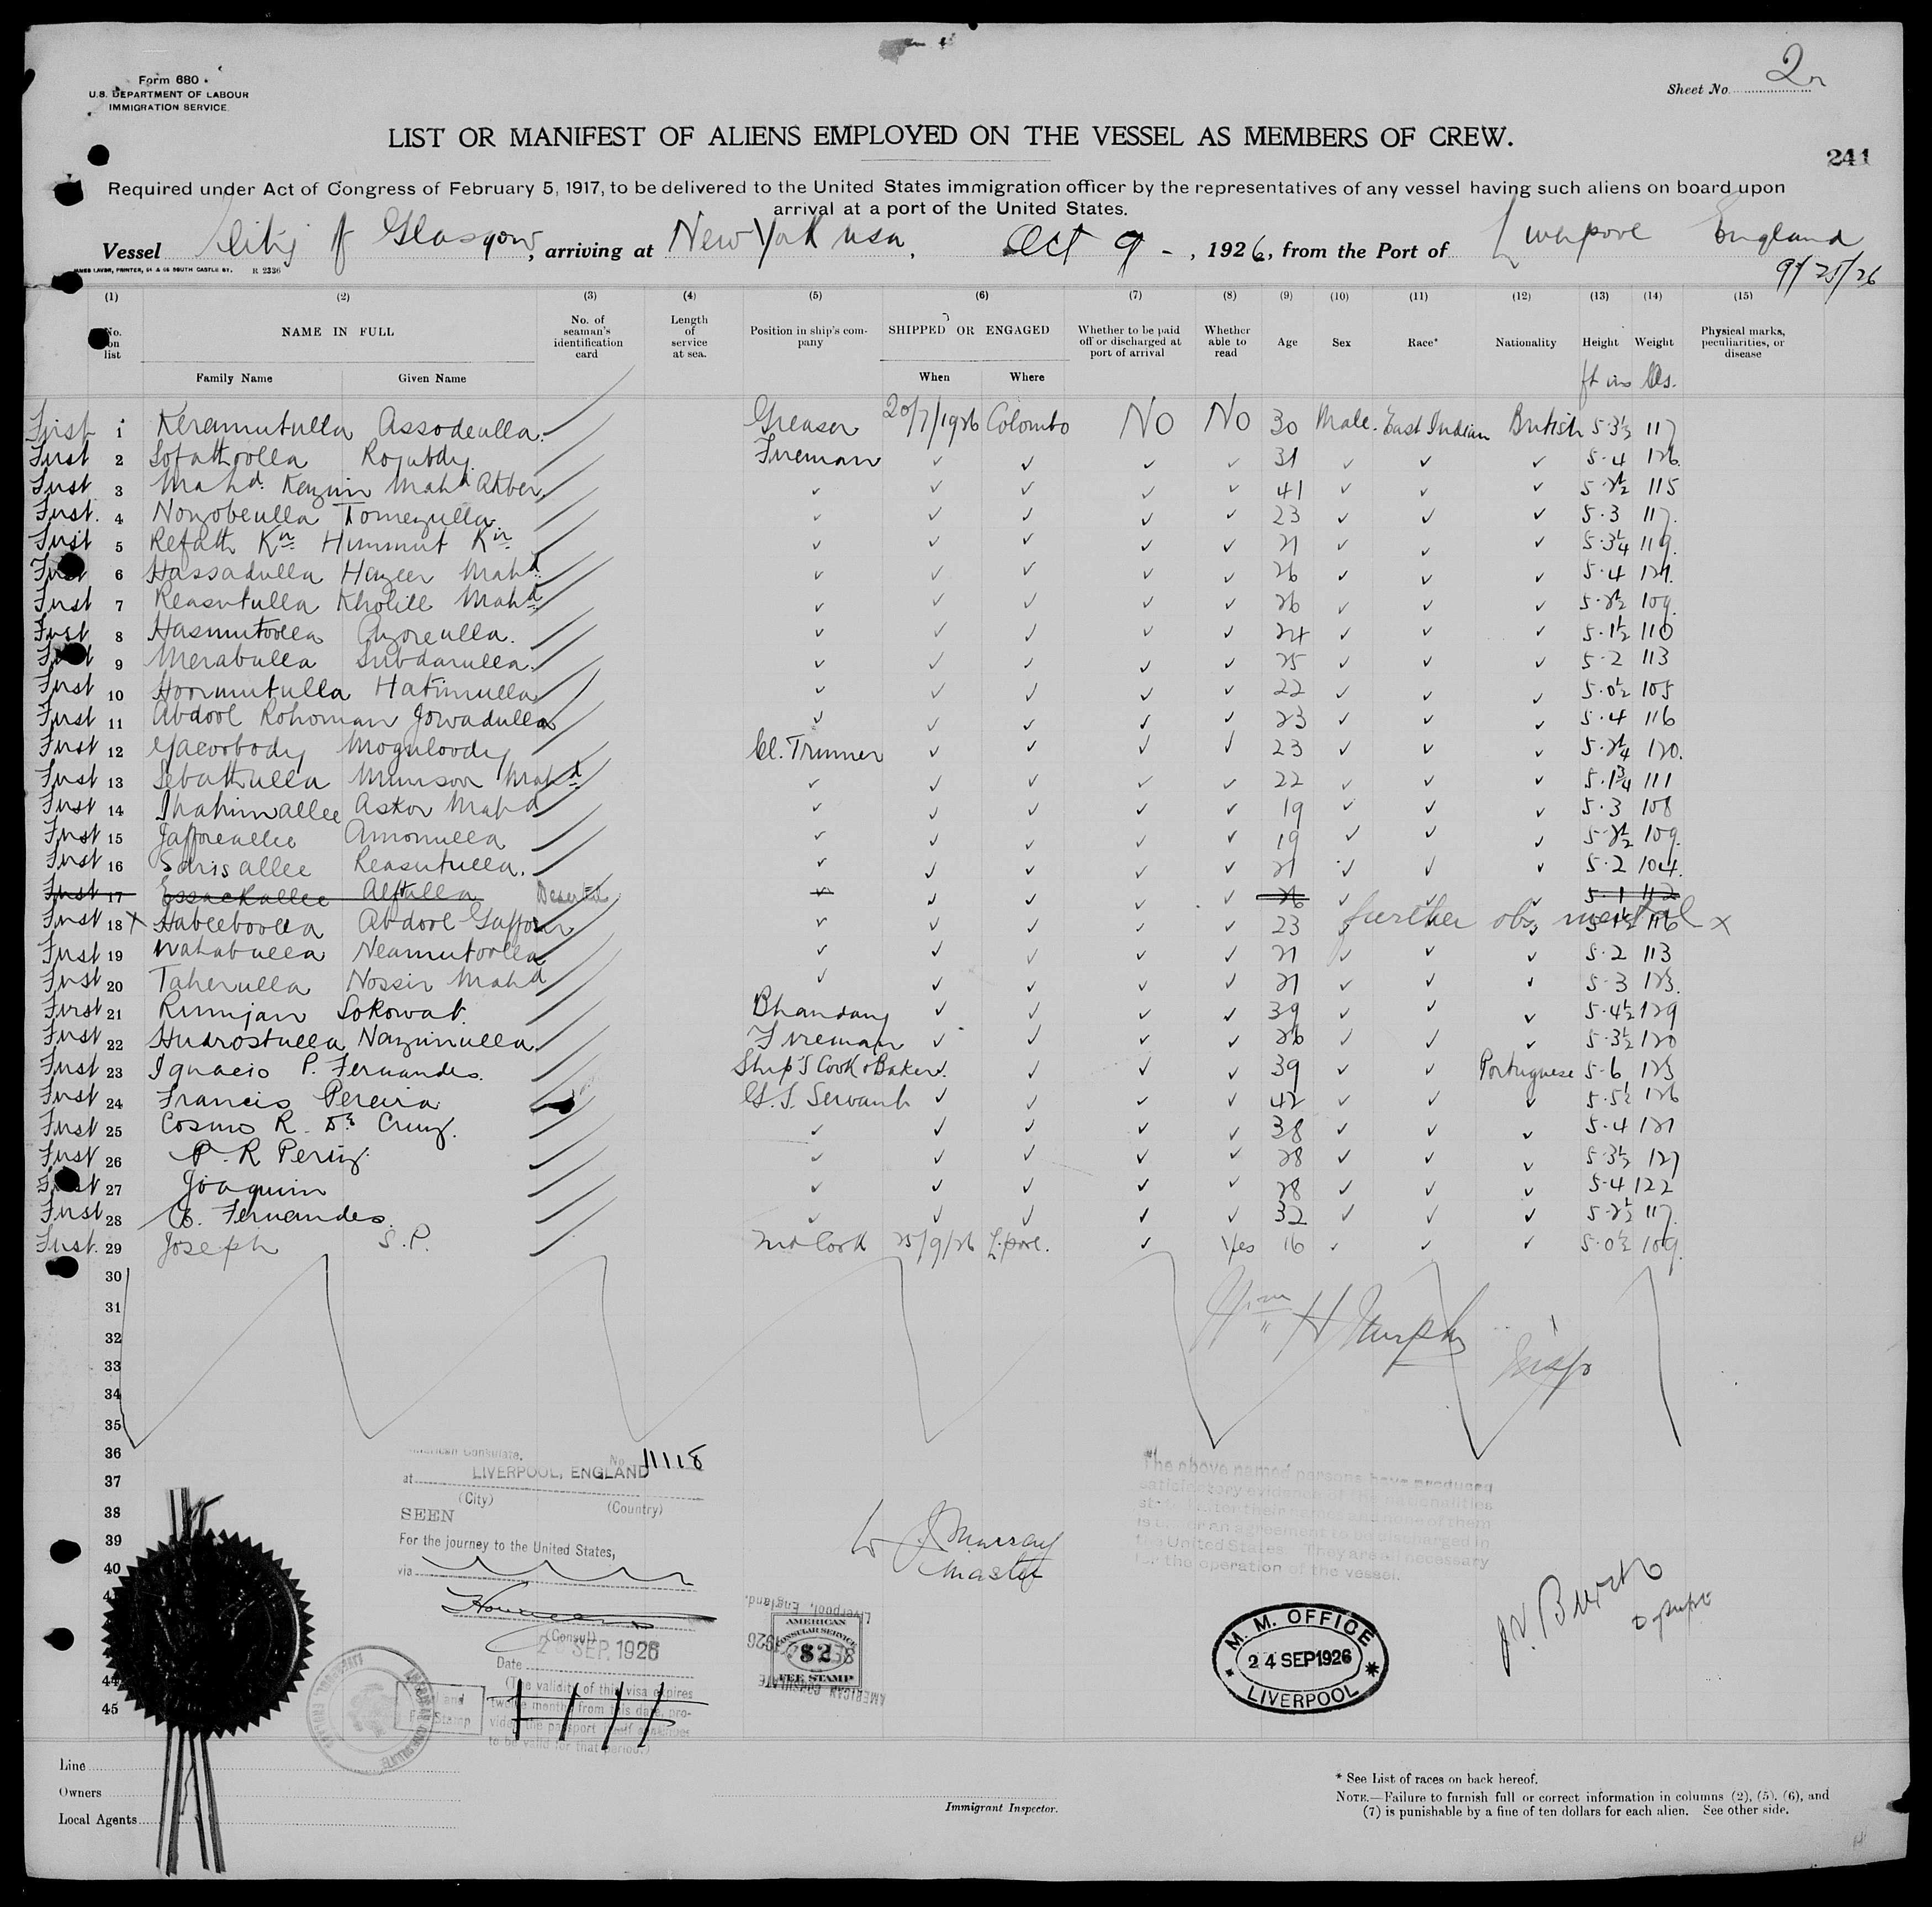 Form 680
U.S. DEPARTMENT OF LABOUR
IMMIGRATION SERVICE
Sheet No. 2
LIST OR MANIFEST OF ALIENS EMPLOYED ON THE VESSEL AS MEMBERS OF CREW.
241
Required under Act of Congress of February 5, 1917, to be delivered to the United States immigration officer by the representatives of any vessel having such aliens on board upon
arrival at a port of the United States.
Vessel City of Glasgow, arriving at New York USA, Oct 9 - , 1926, from the Port of Liverpool England
9/25/26
JAMES LAVER, PRINTER, 64 & 66 SOUTH CASTLE ST. R 2336
(1) (2) (3) (4) (5) (6) (7) (8) (9) (10) (11) (12) (13) (14) (15)
No. on list NAME IN FULL No. of seaman's identification card Length of service at sea. Position in ship's company SHIPPED OR ENGAGED Whether to be paid off or discharged at port of arrival Whether able to read Age Sex Race* Nationality Height Weight Physical marks, peculiarities, or disease
Family Name Given Name When Where ft ins lbs.
First 1 Keramutulla Assodeulla. Greaser 20/7/1926 Colombo No No 30 Male. East Indian British 5·3½ 117
First 2 Sofathoolla Rojubdy. Fireman ✓ ✓ ✓ ✓ 31 ✓ ✓ ✓ 5·4 126
First 3 Mahd. Kazim Mahd Akber. ✓ ✓ ✓ ✓ ✓ 41 ✓ ✓ ✓ 5·2½ 115
First. 4 Nozobeulla Tomezulla. ✓ ✓ ✓ ✓ ✓ 23 ✓ ✓ ✓ 5·3 117.
First 5 Refath Kn Himmut Kn ✓ ✓ ✓ ✓ ✓ 21 ✓ ✓ ✓ 5·3¼ 119.
First 6 Hassadulla Hazeer Mahd. ✓ ✓ ✓ ✓ ✓ 26 ✓ ✓ ✓ 5·4 121.
First 7 Reasutulla Kholill Mahd ✓ ✓ ✓ ✓ ✓ 26 ✓ ✓ ✓ 5·2½ 109.
First 8 Hasmutoolla Azoreulla. ✓ ✓ ✓ ✓ ✓ 24 ✓ ✓ ✓ 5·1½ 110
First 9 Merabulla Subdarulla. ✓ ✓ ✓ ✓ ✓ 25 ✓ ✓ ✓ 5·2 113
First 10 Hoormutulla Hatimulla ✓ ✓ ✓ ✓ ✓ 22 ✓ ✓ ✓ 5·0½ 105
First 11 Abdool Rohoman Jowadulla ✓ ✓ ✓ ✓ ✓ 23 ✓ ✓ ✓ 5·4 116
First 12 Yacoobody Moguloody Cl. Trimmer ✓ ✓ ✓ ✓ 23 ✓ ✓ ✓ 5·2¼ 120.
First 13 Sebathulla Munsoor Mahd ✓ ✓ ✓ ✓ ✓ 22 ✓ ✓ ✓ 5·1¾ 111
First 14 Ibahimallee Askor Mahd ✓ ✓ ✓ ✓ ✓ 19 ✓ ✓ ✓ 5·3 108
First 15 Jafforeallee Amonulla ✓ ✓ ✓ ✓ ✓ 19 ✓ ✓ ✓ 5·2½ 109.
First 16 Sdrisallee Reasutulla. ✓ ✓ ✓ ✓ ✓ 21 ✓ ✓ ✓ 5·2 104.
First 17 Essackallee Alfulla Deserted ✓ ✓ ✓ ✓ ✓ 26 ✓ ✓ ✓ 5·1 112
First 18 X Habeeboolla Abdool Gaffoor ✓ ✓ ✓ ✓ ✓ 23 further obs, mental X 116
First 19 Wahabulla Neamutoolla ✓ ✓ ✓ ✓ ✓ 21 ✓ ✓ ✓ 5·2 113
First 20 Taherulla Nossir Mahd ✓ ✓ ✓ ✓ ✓ 21 ✓ ✓ ✓ 5·3 123.
First 21 Rumjan Sokowat. Bhandary ✓ ✓ ✓ ✓ 39 ✓ ✓ ✓ 5·4½ 129
First 22 Hudrostulla Nazimulla. Fireman ✓ ✓ ✓ ✓ 26 ✓ ✓ ✓ 5·3½ 120
First 23 Ignacio P. Fernandes. Ship's Cook & Baker. ✓ ✓ ✓ 39 ✓ ✓ Portuguese 5·6 123
First 24 Francis Pereira G. S. Servant ✓ ✓ ✓ ✓ 42 ✓ ✓ ✓ 5·5½ 126
First 25 Cosmo R. Da Cruz. ✓ ✓ ✓ ✓ ✓ 38 ✓ ✓ ✓ 5·4 121
First 26 P. R Periz. ✓ ✓ ✓ ✓ ✓ 28 ✓ ✓ ✓ 5·3½ 127
First 27 Joaquim ✓ ✓ ✓ ✓ ✓ 28 ✓ ✓ ✓ 5·4 122
First 28 C. Fernandes. ✓ ✓ ✓ ✓ ✓ 32 ✓ ✓ ✓ 5·2½ 117.
First. 29 Joseph S.P. 2nd Cook 25/9/26 L.pool. ✓ Yes 16 ✓ ✓ ✓ 5·0½ 109.
30
31
32
33
34
35
36
37
38
39
40
44
45
Wm H Murphy
Insp
American Consulate,
No. 11118
at LIVERPOOL, ENGLAND
(City) (Country)
SEEN
For the journey to the United States,
via
(Consul)
SEP. 1926
Date
(The validity of this visa expires
twelve months from this date, pro-
vided the passport itself continues
to be valid for that period.)
W J Murray
Master
AMERICAN
CONSULAR SERVICE
$2
FEE STAMP
Liverpool, England.
AMERICAN CONSULATE
The above named persons have produced
satisfactory evidence of the nationalities
stated after their names and none of them
is under an agreement to be discharged in
the United States. They are all necessary
for the operation of the vessel.
M. M. OFFICE
24 SEP 1926
LIVERPOOL
Line
Owners
Local Agents
Immigrant Inspector.
* See List of races on back hereof.
NOTE.—Failure to furnish full or correct information in columns (2), (5), (6), and
(7) is punishable by a fine of ten dollars for each alien. See other side.